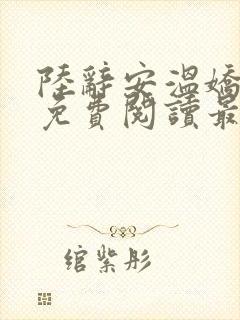 陸辭安溫嬌
免費閱讀最
綰紫彤